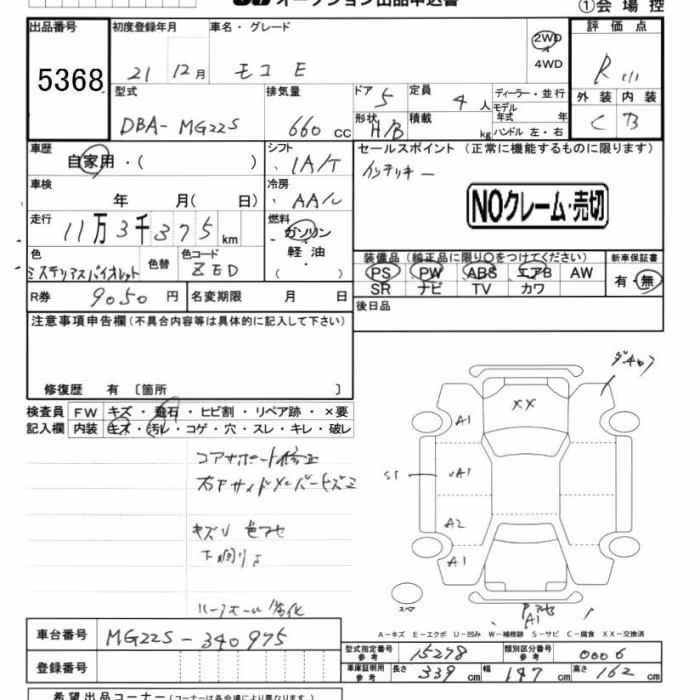 オークション出品申込書
①会場控
出品番号 初度登録年月 車名・グレード 評価点
5368 21 12月 モコ E 2WD 4WD R
型式 排気量 ドア 定員 ディーラー・並行
DBA-MG22S 660cc 5 4人 モデル年式 年
形状 H/B 積載 kg ハンドル 左・右
外装 内装
C B
車歴 自家用・( )
シフト IA/T
セールスポイント (正常に機能するものに限ります)
インテリキー
車検 年 月( 日)
冷房 AA/C
NOクレーム・売切
走行 11万3千375km
燃料 ガソリン 軽油 ( )
色 ミステリアスバイオレット 色替 色コード ZED
装備品 (純正品に限り○をつけてください) 新車保証書
PS PW ABS エアB AW 有・無
SR ナビ TV カワ
R券 9050円 名変期限 月 日
後日品
注意事項申告欄(不具合内容等は具体的に記入して下さい)
修復歴 有 〔箇所 〕
検査員 FW キズ・飛石・ヒビ割・リペア跡・×要
記入欄 内装 キズ・汚レ・コゲ・穴・スレ・キレ・破レ
コアサポート修正
右Fサイドメンバーキズ
キズU 色アセ
下廻りサ
XX
A1
S1
A1
A2
A1
スペア
A1
A−キズ E−エクボ U−凹み W−補修跡 S−サビ C−腐食 XX−交換済
車台番号 MG22S-340975
登録番号
型式指定番号 参考 15278 類別区分番号 参考 0006
車庫証明用 参考 長さ 339cm 幅 147cm 高さ 162cm
希望出品コーナー(コーナーは各会場により異なります。)